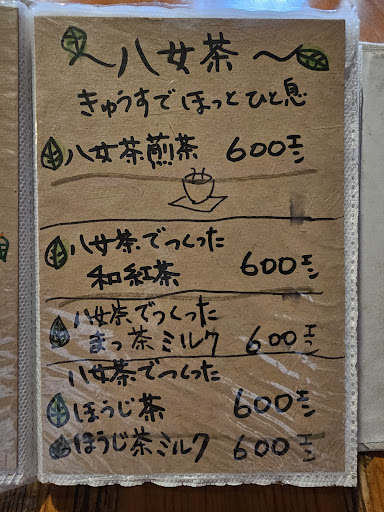 〜八女茶〜
きゅうすでほっとひと息
八女茶煎茶 600エン
八女茶でつくった
和紅茶 600エン
八女茶でつくった
まっ茶ミルク 600エン
八女茶でつくった
ほうじ茶 600エン
ほうじ茶ミルク 600エン